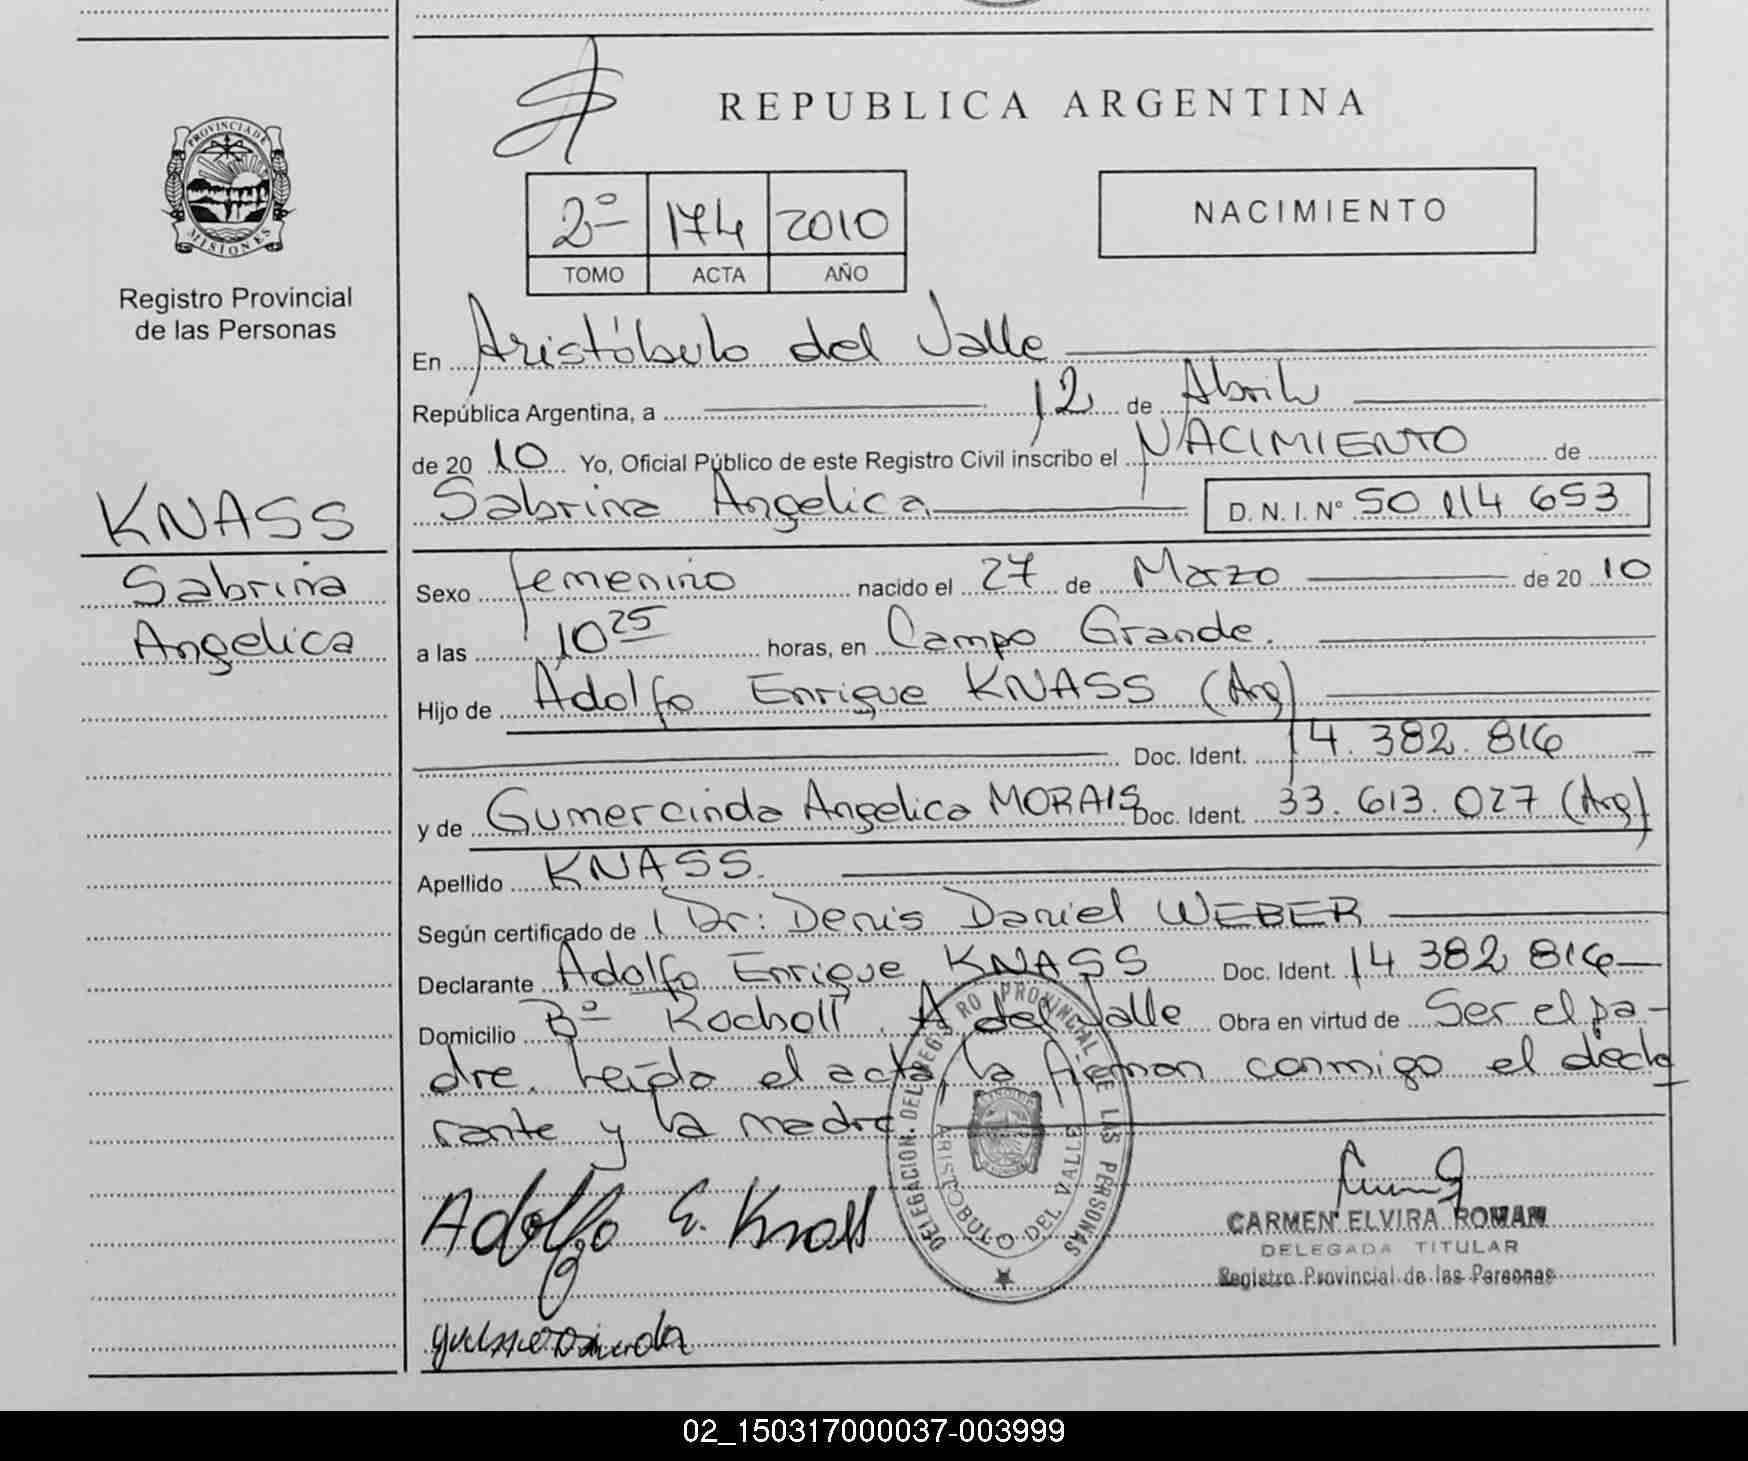 REPUBLICA ARGENTINA
PROVINCIA DE MISIONES
Registro Provincial
de las Personas
2º 174 2010
TOMO ACTA AÑO
NACIMIENTO
En Aristóbulo del Valle
República Argentina, a 12 de Abril
de 2010 Yo, Oficial Público de este Registro Civil inscribo el NACIMIENTO de
Sabrina Angelica D. N. I. Nº 50 114 653
KNASS
Sabrina
Angelica
Sexo femenino nacido el 27 de Marzo de 2010
a las 10 25 horas, en Campo Grande.
Hijo de Adolfo Enrique KNASS (Arg)
Doc. Ident. 14.382.816
y de Gumercinda Angelica MORAIS Doc. Ident. 33.613.027 (Arg)
Apellido KNASS.
Según certificado de Dr: Denis Daniel WEBER
Declarante Adolfo Enrique KNASS Doc. Ident. 14 382 816
Domicilio Bº Kocholl. A del Valle Obra en virtud de Ser el pa-
dre. Leída el acta, la firman conmigo el decla
rante y la madre
Adolfo E. Knass
DELEGACION DEL REGISTRO PROVINCIAL DE LAS PERSONAS
ARISTOBULO DEL VALLE
CARMEN ELVIRA ROMAN
DELEGADA TITULAR
Registro Provincial de las Personas
02_150317000037-003999